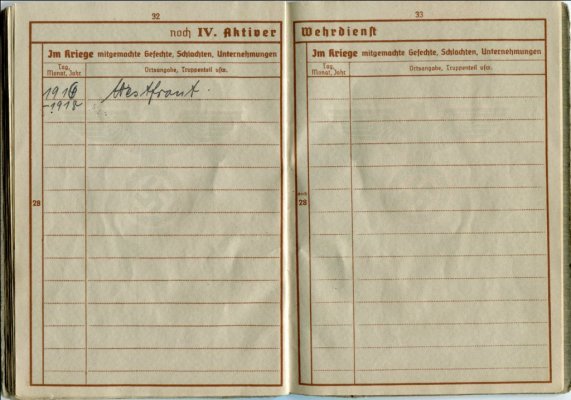 32
noch IV. Aktiver
Im Kriege mitgemachte Gefechte, Schlachten, Unternehmungen
Tag, Monat, Jahr
Ortsangabe, Truppenteil usw.
1916 Westfront.
-1918
28
33
Wehrdienst
Im Kriege mitgemachte Gefechte, Schlachten, Unternehmungen
Tag, Monat, Jahr
Ortsangabe, Truppenteil usw.
noch
28